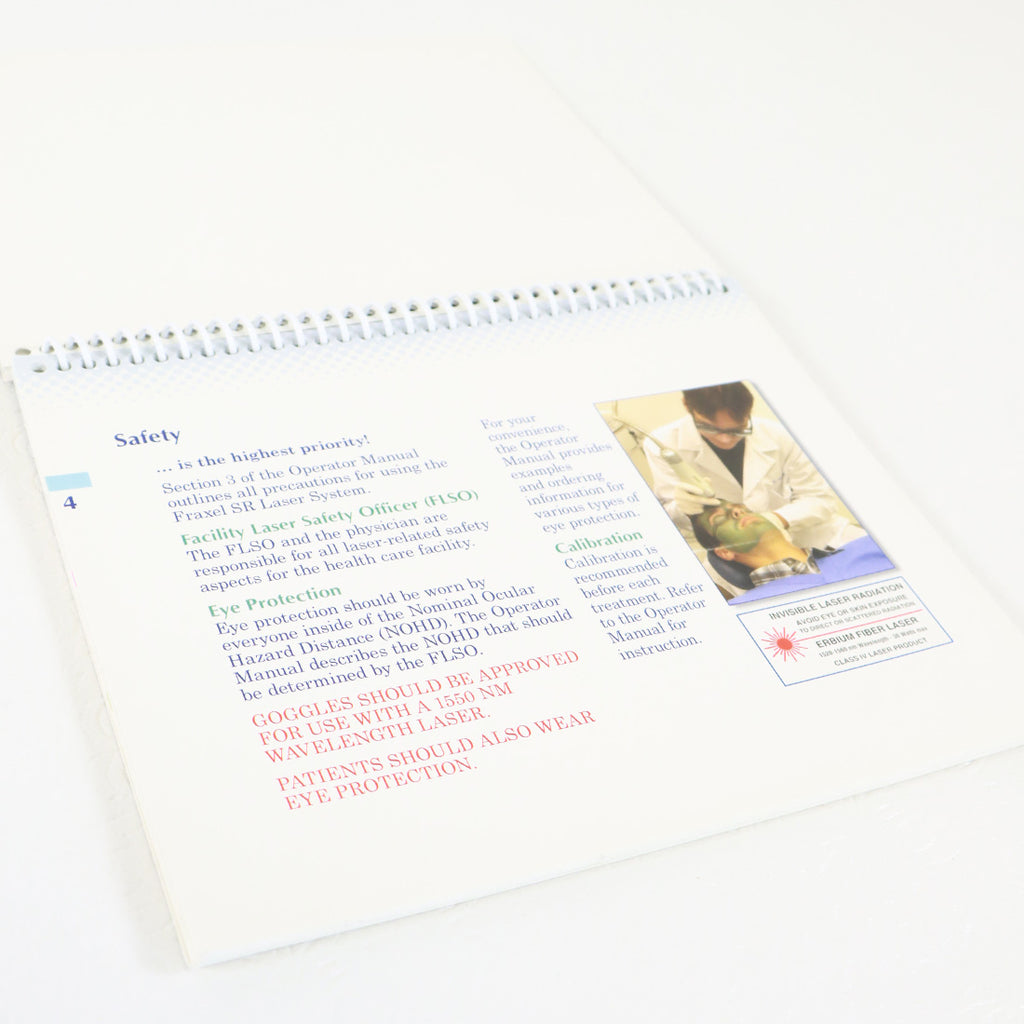 Safety
... is the highest priority!
Section 3 of the Operator Manual
outlines all precautions for using the
Fraxel SR Laser System.
Facility Laser Safety Officer (FLSO)
The FLSO and the physician are
responsible for all laser-related safety
aspects for the health care facility.
Eye Protection
Eye protection should be worn by
everyone inside of the Nominal Ocular
Hazard Distance (NOHD). The Operator
Manual describes the NOHD that should
be determined by the FLSO.
GOGGLES SHOULD BE APPROVED
FOR USE WITH A 1550 NM
WAVELENGTH LASER.
PATIENTS SHOULD ALSO WEAR
EYE PROTECTION.
For your
convenience,
the Operator
Manual provides
examples
and ordering
information for
various types of
eye protection.
Calibration
Calibration is
recommended
before each
treatment. Refer
to the Operator
Manual for
instruction.
INVISIBLE LASER RADIATION
AVOID EYE OR SKIN EXPOSURE
TO DIRECT OR SCATTERED RADIATION
ERBIUM FIBER LASER
nm Wavelength - 30 Watts max
CLASS IV LASER PRODUCT
4